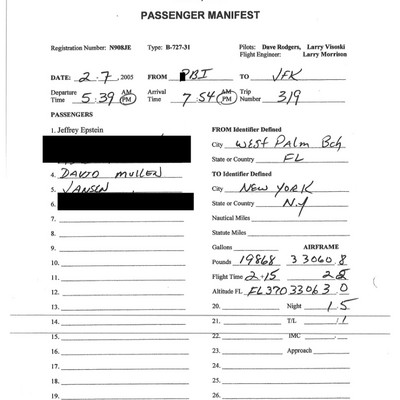 PASSENGER MANIFEST
Registration Number: N908JE Type: B-727-31 Pilots: Dave Rodgers, Larry Visoski
Flight Engineer: Larry Morrison
DATE: 2.7, 2005 FROM PBI TO JFK
Departure Time 5:39 AM PM Arrival Time 7:54 AM PM Trip Number 319
PASSENGERS
1. Jeffrey Epstein FROM Identifier Defined
City West Palm Bch
State or Country FL
4. DAVID MULLEN TO Identifier Defined
5. JANSEN City NEW YORK
6. State or Country N.Y
7. Nautical Miles
8. Statute Miles
9. Gallons AIRFRAME
10. Pounds 19868 33060 8
11. Flight Time 2+15 2 2
12. Altitude FL FL370 33063 0
13. 20. Night 1 5
14. 21. T/L :1
15. 22. IMC
16. 23. Approach
17. 24.
18. 25.
19. 26.